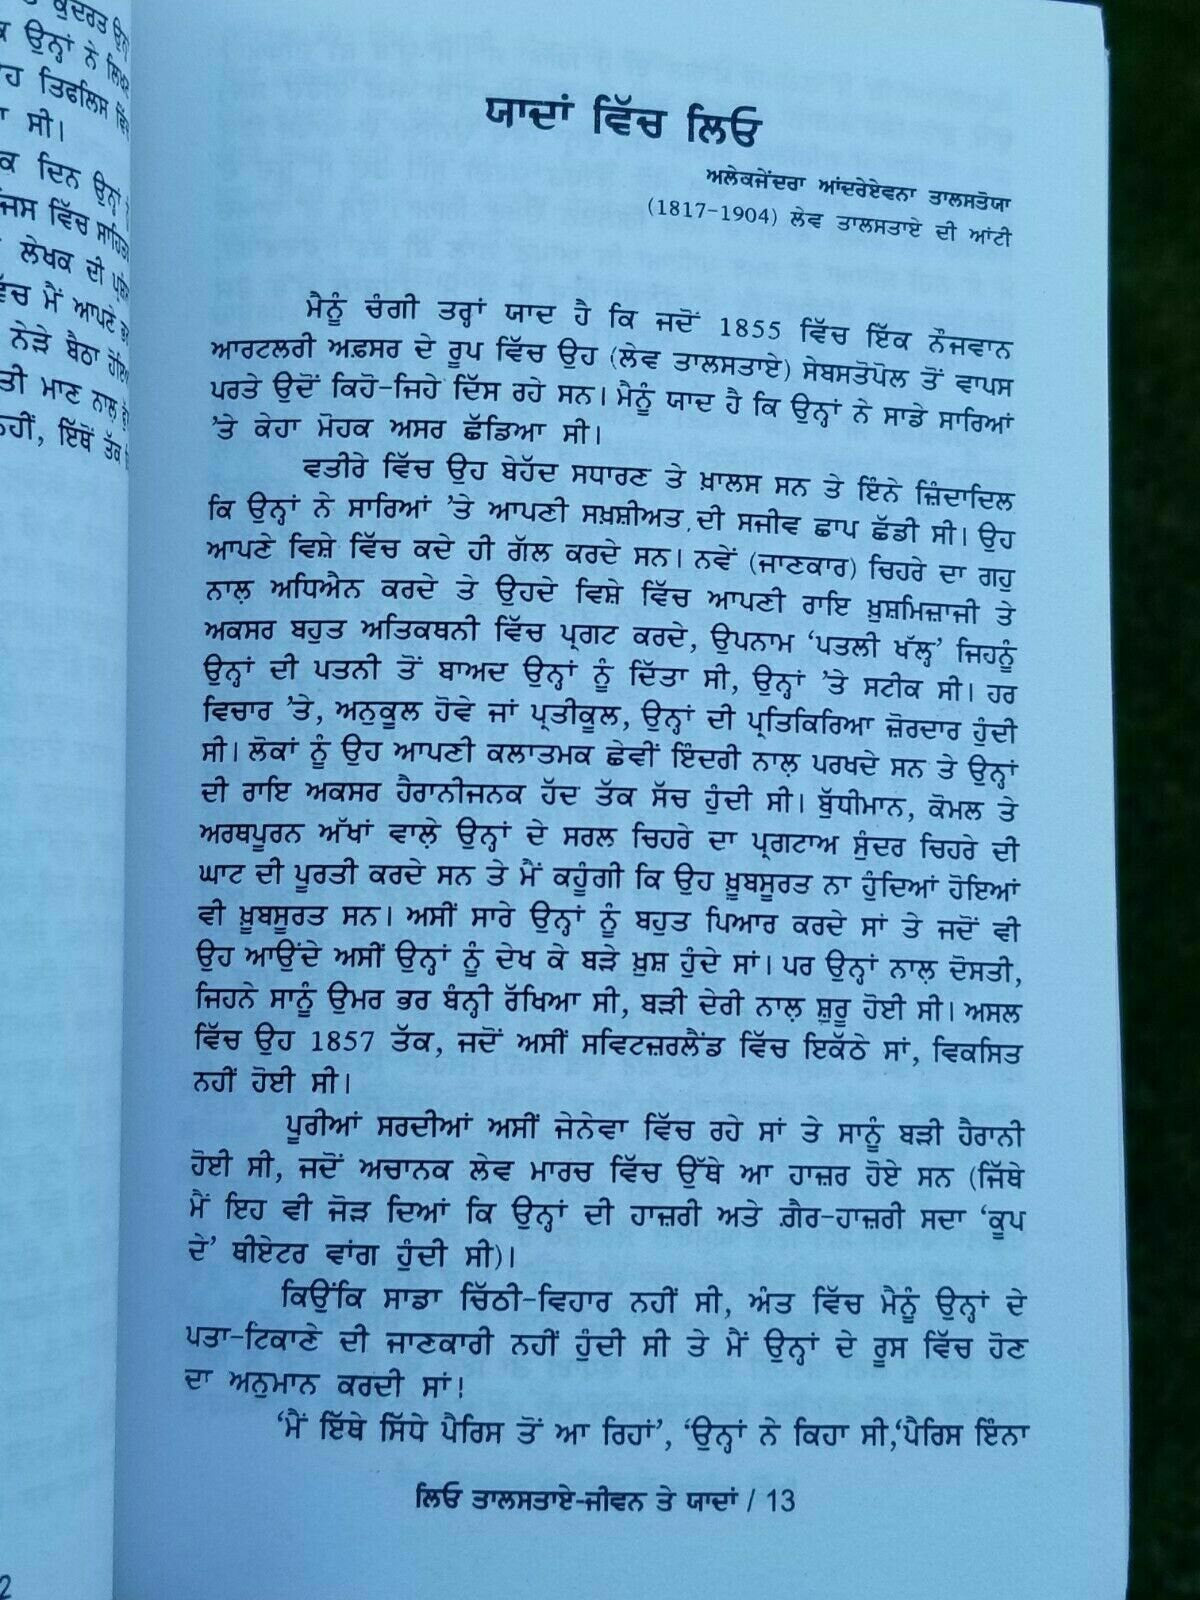 ਕੁਦਰਤ
ਉਨ੍ਹਾਂ ਨੇ
ਤਿਫਲਿਸ
ਸੀ।
ਦਿਨ ਉਨ੍ਹਾਂ
ਵਿੱਚ
ਲੇਖਕ ਦੀ
ਮੈਂ ਆਪਣੇ
ਨੇੜੇ ਬੈਠਾ
ਮਾਣ ਨਾਲ
ਇੱਥੋਂ ਤੱਕ
ਯਾਦਾਂ ਵਿੱਚ ਲਿਓ
ਅਲੇਕਜੇਂਦਰਾ ਆਂਦਰੇਏਵਨਾ ਤਾਲਸਤੋਯਾ
(1817-1904) ਲੇਵ ਤਾਲਸਤਾਏ ਦੀ ਆਂਟੀ
ਮੈਨੂੰ ਚੰਗੀ ਤਰ੍ਹਾਂ ਯਾਦ ਹੈ ਕਿ ਜਦੋਂ 1855 ਵਿੱਚ ਇੱਕ ਨੌਜਵਾਨ
ਆਰਟਲਰੀ ਅਫ਼ਸਰ ਦੇ ਰੂਪ ਵਿੱਚ ਉਹ (ਲੇਵ ਤਾਲਸਤਾਏ) ਸੇਬਸਤੋਪੋਲ ਤੋਂ ਵਾਪਸ
ਪਰਤੇ ਉਦੋਂ ਕਿਹੋ-ਜਿਹੇ ਦਿੱਸ ਰਹੇ ਸਨ। ਮੈਨੂੰ ਯਾਦ ਹੈ ਕਿ ਉਨ੍ਹਾਂ ਨੇ ਸਾਡੇ ਸਾਰਿਆਂ
’ਤੇ ਕੇਹਾ ਮੋਹਕ ਅਸਰ ਛੱਡਿਆ ਸੀ।
ਵਤੀਰੇ ਵਿੱਚ ਉਹ ਬੇਹੱਦ ਸਧਾਰਣ ਤੇ ਖ਼ਾਲਸ ਸਨ ਤੇ ਇੰਨੇ ਜ਼ਿੰਦਾਦਿਲ
ਕਿ ਉਨ੍ਹਾਂ ਨੇ ਸਾਰਿਆਂ ’ਤੇ ਆਪਣੀ ਸਖ਼ਸ਼ੀਅਤ ਦੀ ਸਜੀਵ ਛਾਪ ਛੱਡੀ ਸੀ। ਉਹ
ਆਪਣੇ ਵਿਸ਼ੇ ਵਿੱਚ ਕਦੇ ਹੀ ਗੱਲ ਕਰਦੇ ਸਨ। ਨਵੇਂ (ਜਾਣਕਾਰ) ਚਿਹਰੇ ਦਾ ਗਹੁ
ਨਾਲ਼ ਅਧਿਐਨ ਕਰਦੇ ਤੇ ਉਹਦੇ ਵਿਸ਼ੇ ਵਿੱਚ ਆਪਣੀ ਰਾਇ ਖ਼ੁਸ਼ਮਿਜ਼ਾਜੀ ਤੇ
ਅਕਸਰ ਬਹੁਤ ਅਤਿਕਥਨੀ ਵਿੱਚ ਪ੍ਰਗਟ ਕਰਦੇ, ਉਪਨਾਮ ‘ਪਤਲੀ ਖੱਲ੍ਹ’ ਜਿਹਨੂੰ
ਉਨ੍ਹਾਂ ਦੀ ਪਤਨੀ ਤੋਂ ਬਾਅਦ ਉਨ੍ਹਾਂ ਨੂੰ ਦਿੱਤਾ ਸੀ, ਉਨ੍ਹਾਂ ’ਤੇ ਸਟੀਕ ਸੀ। ਹਰ
ਵਿਚਾਰ ’ਤੇ, ਅਨੁਕੂਲ ਹੋਵੇ ਜਾਂ ਪ੍ਰਤੀਕੂਲ, ਉਨ੍ਹਾਂ ਦੀ ਪ੍ਰਤਿਕਿਰਿਆ ਜ਼ੋਰਦਾਰ ਹੁੰਦੀ
ਸੀ। ਲੋਕਾਂ ਨੂੰ ਉਹ ਆਪਣੀ ਕਲਾਤਮਕ ਛੇਵੀਂ ਇੰਦਰੀ ਨਾਲ਼ ਪਰਖਦੇ ਸਨ ਤੇ ਉਨ੍ਹਾਂ
ਦੀ ਰਾਇ ਅਕਸਰ ਹੈਰਾਨੀਜਨਕ ਹੱਦ ਤੱਕ ਸੱਚ ਹੁੰਦੀ ਸੀ। ਬੁੱਧੀਮਾਨ, ਕੋਮਲ ਤੇ
ਅਰਥਪੂਰਨ ਅੱਖਾਂ ਵਾਲ਼ੇ ਉਨ੍ਹਾਂ ਦੇ ਸਰਲ ਚਿਹਰੇ ਦਾ ਪ੍ਰਗਟਾਅ ਸੁੰਦਰ ਚਿਹਰੇ ਦੀ
ਘਾਟ ਦੀ ਪੂਰਤੀ ਕਰਦੇ ਸਨ ਤੇ ਮੈਂ ਕਹੂੰਗੀ ਕਿ ਉਹ ਖ਼ੂਬਸੂਰਤ ਨਾ ਹੁੰਦਿਆਂ ਹੋਇਆਂ
ਵੀ ਖ਼ੂਬਸੂਰਤ ਸਨ। ਅਸੀਂ ਸਾਰੇ ਉਨ੍ਹਾਂ ਨੂੰ ਬਹੁਤ ਪਿਆਰ ਕਰਦੇ ਸਾਂ ਤੇ ਜਦੋਂ ਵੀ
ਉਹ ਆਉਂਦੇ ਅਸੀਂ ਉਨ੍ਹਾਂ ਨੂੰ ਦੇਖ ਕੇ ਬੜੇ ਖ਼ੁਸ਼ ਹੁੰਦੇ ਸਾਂ। ਪਰ ਉਨ੍ਹਾਂ ਨਾਲ਼ ਦੋਸਤੀ,
ਜਿਹਨੇ ਸਾਨੂੰ ਉਮਰ ਭਰ ਬੰਨ੍ਹੀ ਰੱਖਿਆ ਸੀ, ਬੜੀ ਦੇਰੀ ਨਾਲ਼ ਸ਼ੁਰੂ ਹੋਈ ਸੀ। ਅਸਲ
ਵਿੱਚ ਉਹ 1857 ਤੱਕ, ਜਦੋਂ ਅਸੀਂ ਸਵਿਟਜ਼ਰਲੈਂਡ ਵਿੱਚ ਇਕੱਠੇ ਸਾਂ, ਵਿਕਸਿਤ
ਨਹੀਂ ਹੋਈ ਸੀ।
ਪੂਰੀਆਂ ਸਰਦੀਆਂ ਅਸੀਂ ਜੇਨੇਵਾ ਵਿੱਚ ਰਹੇ ਸਾਂ ਤੇ ਸਾਨੂੰ ਬੜੀ ਹੈਰਾਨੀ
ਹੋਈ ਸੀ, ਜਦੋਂ ਅਚਾਨਕ ਲੇਵ ਮਾਰਚ ਵਿੱਚ ਉੱਥੇ ਆ ਹਾਜ਼ਰ ਹੋਏ ਸਨ (ਜਿੱਥੇ
ਮੈਂ ਇਹ ਵੀ ਜੋੜ ਦਿਆਂ ਕਿ ਉਨ੍ਹਾਂ ਦੀ ਹਾਜ਼ਰੀ ਅਤੇ ਗ਼ੈਰ-ਹਾਜ਼ਰੀ ਸਦਾ ‘ਕੂਪ
ਦੇ’ ਥੀਏਟਰ ਵਾਂਗ ਹੁੰਦੀ ਸੀ)।
ਕਿਉਂਕਿ ਸਾਡਾ ਚਿੱਠੀ-ਵਿਹਾਰ ਨਹੀਂ ਸੀ, ਅੰਤ ਵਿੱਚ ਮੈਨੂੰ ਉਨ੍ਹਾਂ ਦੇ
ਪਤਾ-ਟਿਕਾਣੇ ਦੀ ਜਾਣਕਾਰੀ ਨਹੀਂ ਹੁੰਦੀ ਸੀ ਤੇ ਮੈਂ ਉਨ੍ਹਾਂ ਦੇ ਰੂਸ ਵਿੱਚ ਹੋਣ
ਦਾ ਅਨੁਮਾਨ ਕਰਦੀ ਸਾਂ!
‘ਮੈਂ ਇੱਥੇ ਸਿੱਧੇ ਪੈਰਿਸ ਤੋਂ ਆ ਰਿਹਾਂ’, ‘ਉਨ੍ਹਾਂ ਨੇ ਕਿਹਾ ਸੀ,‘ਪੈਰਿਸ ਇੰਨਾ
ਲਿਓ ਤਾਲਸਤਾਏ-ਜੀਵਨ ਤੇ ਯਾਦਾਂ / 13